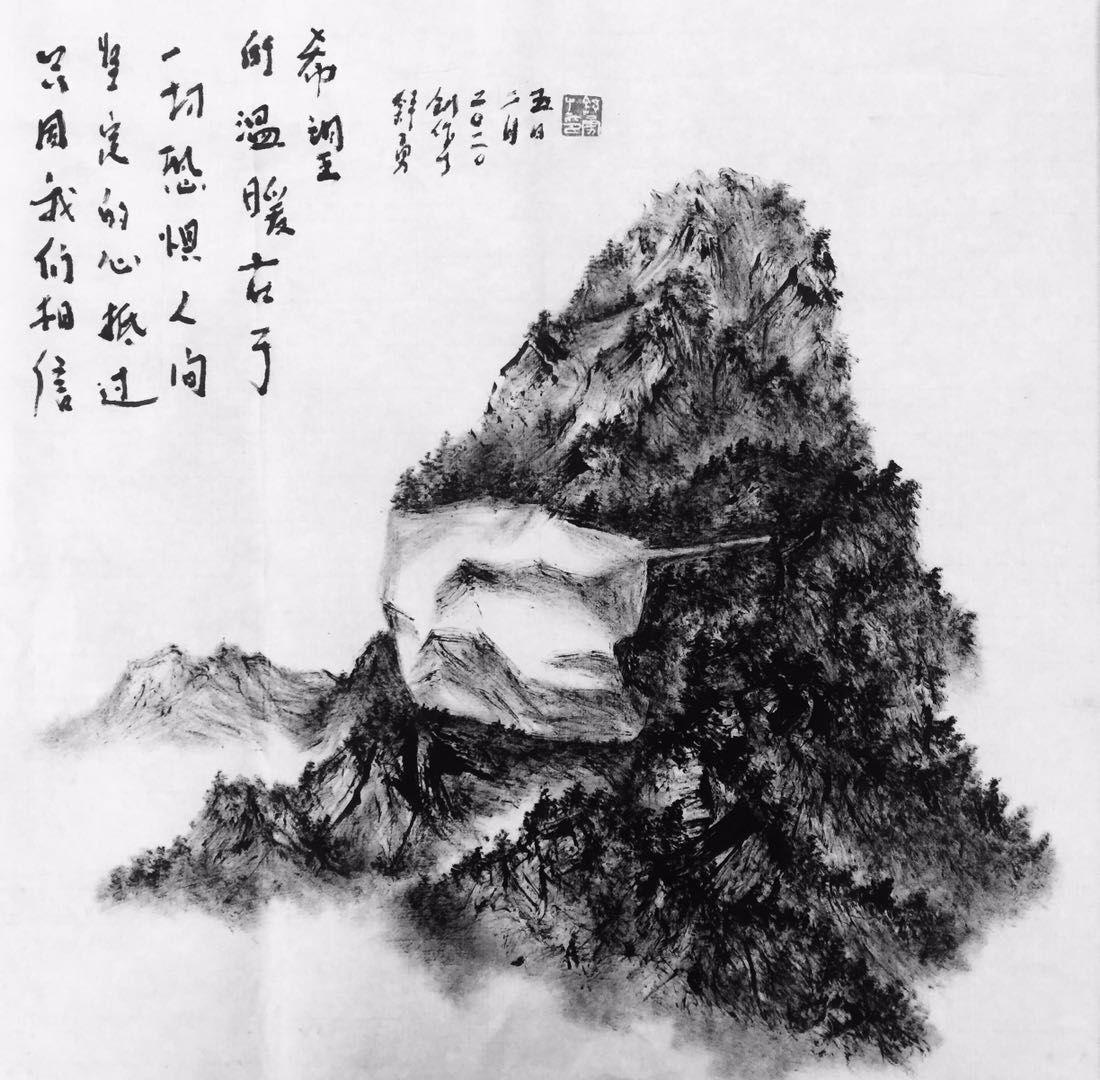 只因我们相信
坚定的心抵过
一切恐惧人间
的温暖在于
希望
舒勇
创作于
二〇二〇
二月
五日